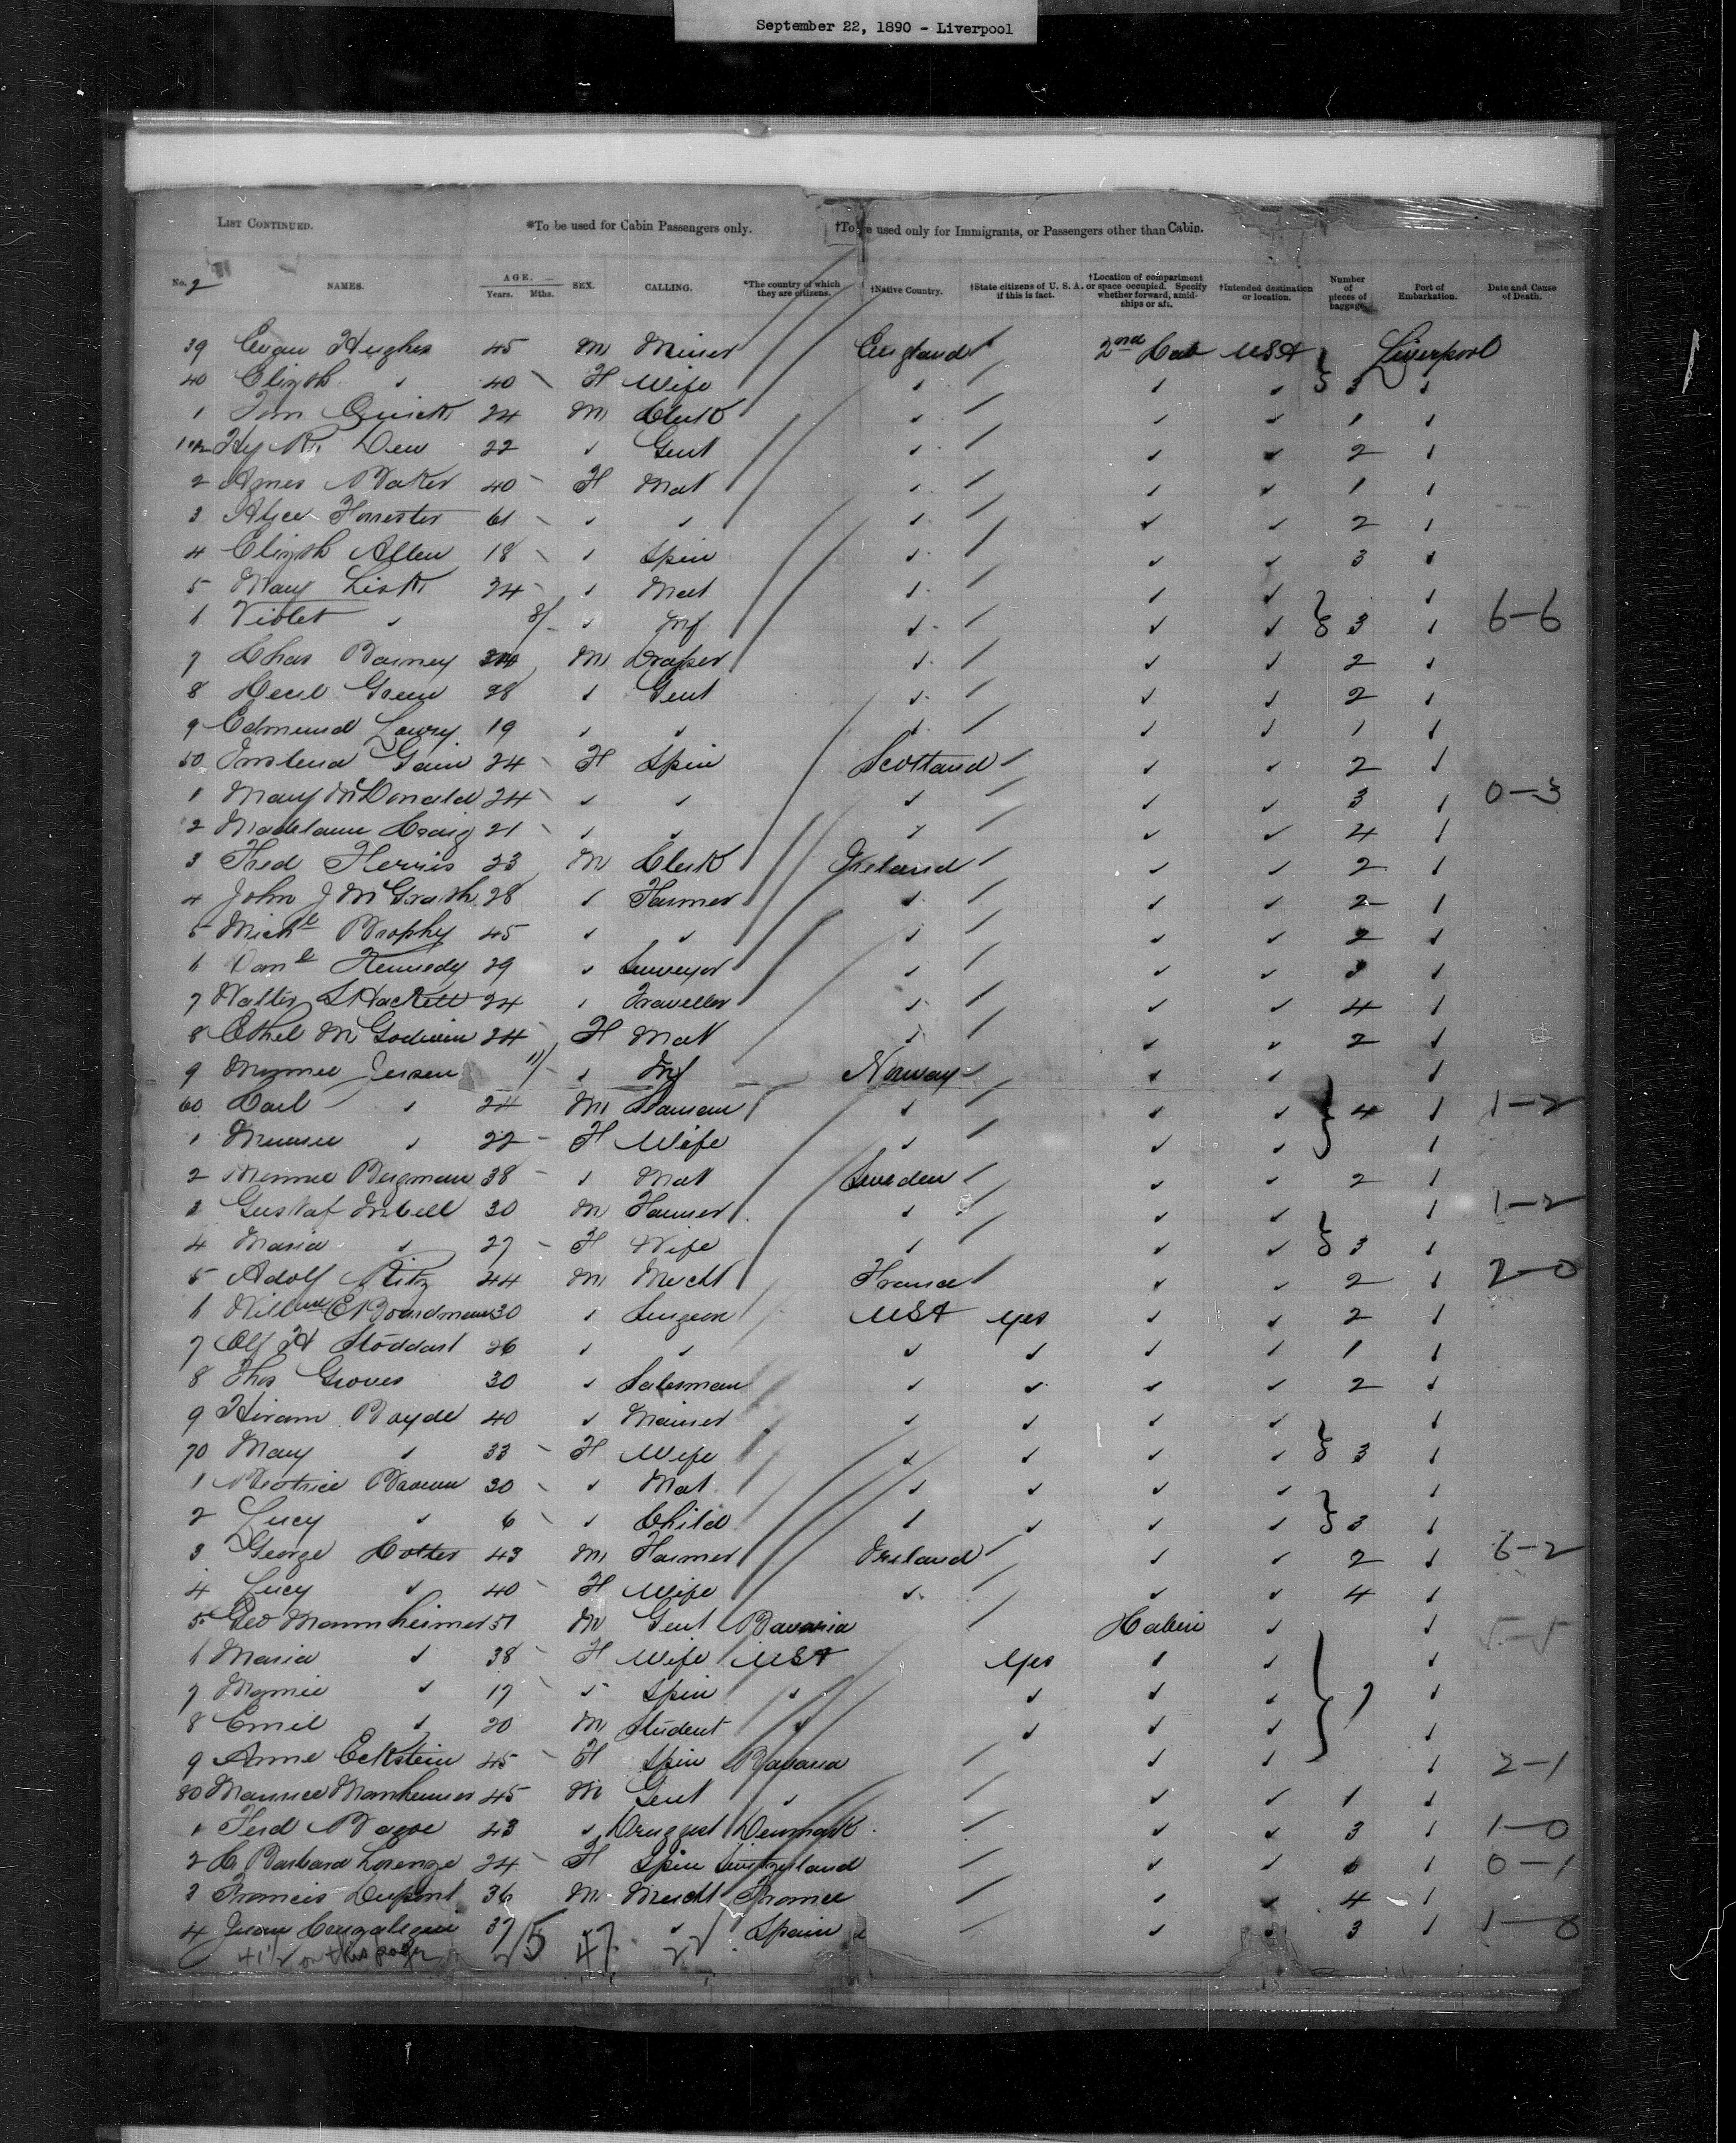 September 22, 1890 - Liverpool
LIST CONTINUED. *To be used for Cabin Passengers only. †To be used only for Immigrants, or Passengers other than Cabin.
No. 2 NAMES. AGE. Years. Mths. SEX. CALLING. *The country of which they are citizens. †Native Country. †State citizens of U. S. A. if this is fact. †Location of compartment or space occupied. Specify whether forward, amidships or aft. †Intended destination or location. Number of pieces of baggage. Port of Embarkation. Date and Cause of Death.
39 Evan Hughes 45 M Miner England 2nd Cab USA Liverpool
40 Elizth 40 F Wife 3
1 Quick 24 M Clerk 1
Hy Dew 22 Gent 2
2 Agnes Baker 40 F Mat 1
3 Alice Forrester 61 2
4 Elizth Allen 18 Spin 3
5 Mary Lisk 24 Mat
6 Violet 8/ Inf 3 6-6
7 Chas Barney M Draper 2
8 Cecil Green 28 Gent 2
9 Edmund Lowry 19 1
50 24 F Spin Scotland 2
1 Mary McDonald 24 3 0-3
2 Craig 21 4
3 Fred Ferris 23 M Clerk Ireland 2
4 John J McGrath 28 Farmer 2
5 Michl Brophy 45 2
6 Danl Kennedy 29 Surveyor 3
7 Walter Hackett 24 Traveller 4
8 Ethel M Godwin 24 F Mat 2
9 Jensen 11/ Inf Norway
60 Carl 24 M Seaman 4 1-2
1 22 F Wife
2 Minnie Bergman 38 Mat Sweden 2
3 Gustaf 30 M Farmer 1-2
4 Maria 27 F Wife 3
5 Adolf 44 M Mercht France 2 2-0
6 E Boardman 30 Surgeon USA Yes 2
7 Alf H Stoddart 26 1
8 Thos Groves 30 Salesman 2
9 Hiram Boyde 40
70 Mary 33 F Wife 3
1 Beatrice 30 Mat
2 Lucy 6 Child 3
3 George Cotter 43 M Farmer Ireland 2 6-2
4 Lucy 40 F Wife 4
5 Geo Mannheimer 51 M Gent Bavaria Cabin
6 Maria 38 F Wife USA Yes
7 Mamie 17 Spin 7
8 Emil 20 M Student
9 Anna Eckstein 45 F Spin Bavaria 2-1
80 Maurice Manheimer 45 M Gent 1
1 Ferd 43 Druggist Denmark 3 1-0
2 C Barbara Lorenze 24 F Spin Switzerland 0-1
3 Francis Dupont 36 M Mercht France 4
4 Juan 37 Spain 3 1-0
on this page 47